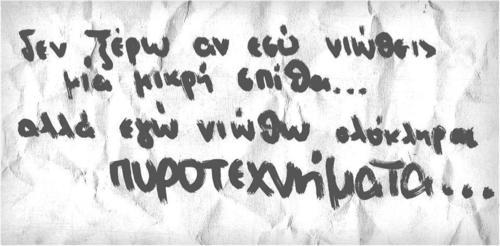 δεν ξέρω αν εσύ νιώθεις
μία μικρή σπίθα...
αλλά εγώ νιώθω ολόκληρα
ΠΥΡΟΤΕΧΝΗΜΑΤΑ...